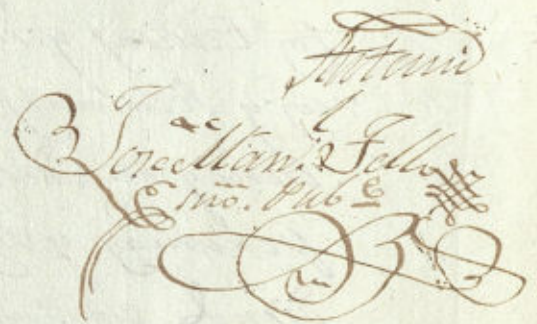 Antemi
Jose Man.l Tello
Essno. Pub.co